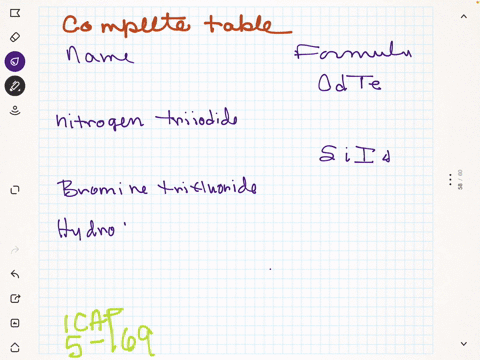 Complete table
Name Formula
CdTe
nitrogen triiodide
SiI4
Bromine trifluoride
Hydro
58 / 60
ICAP
5-169